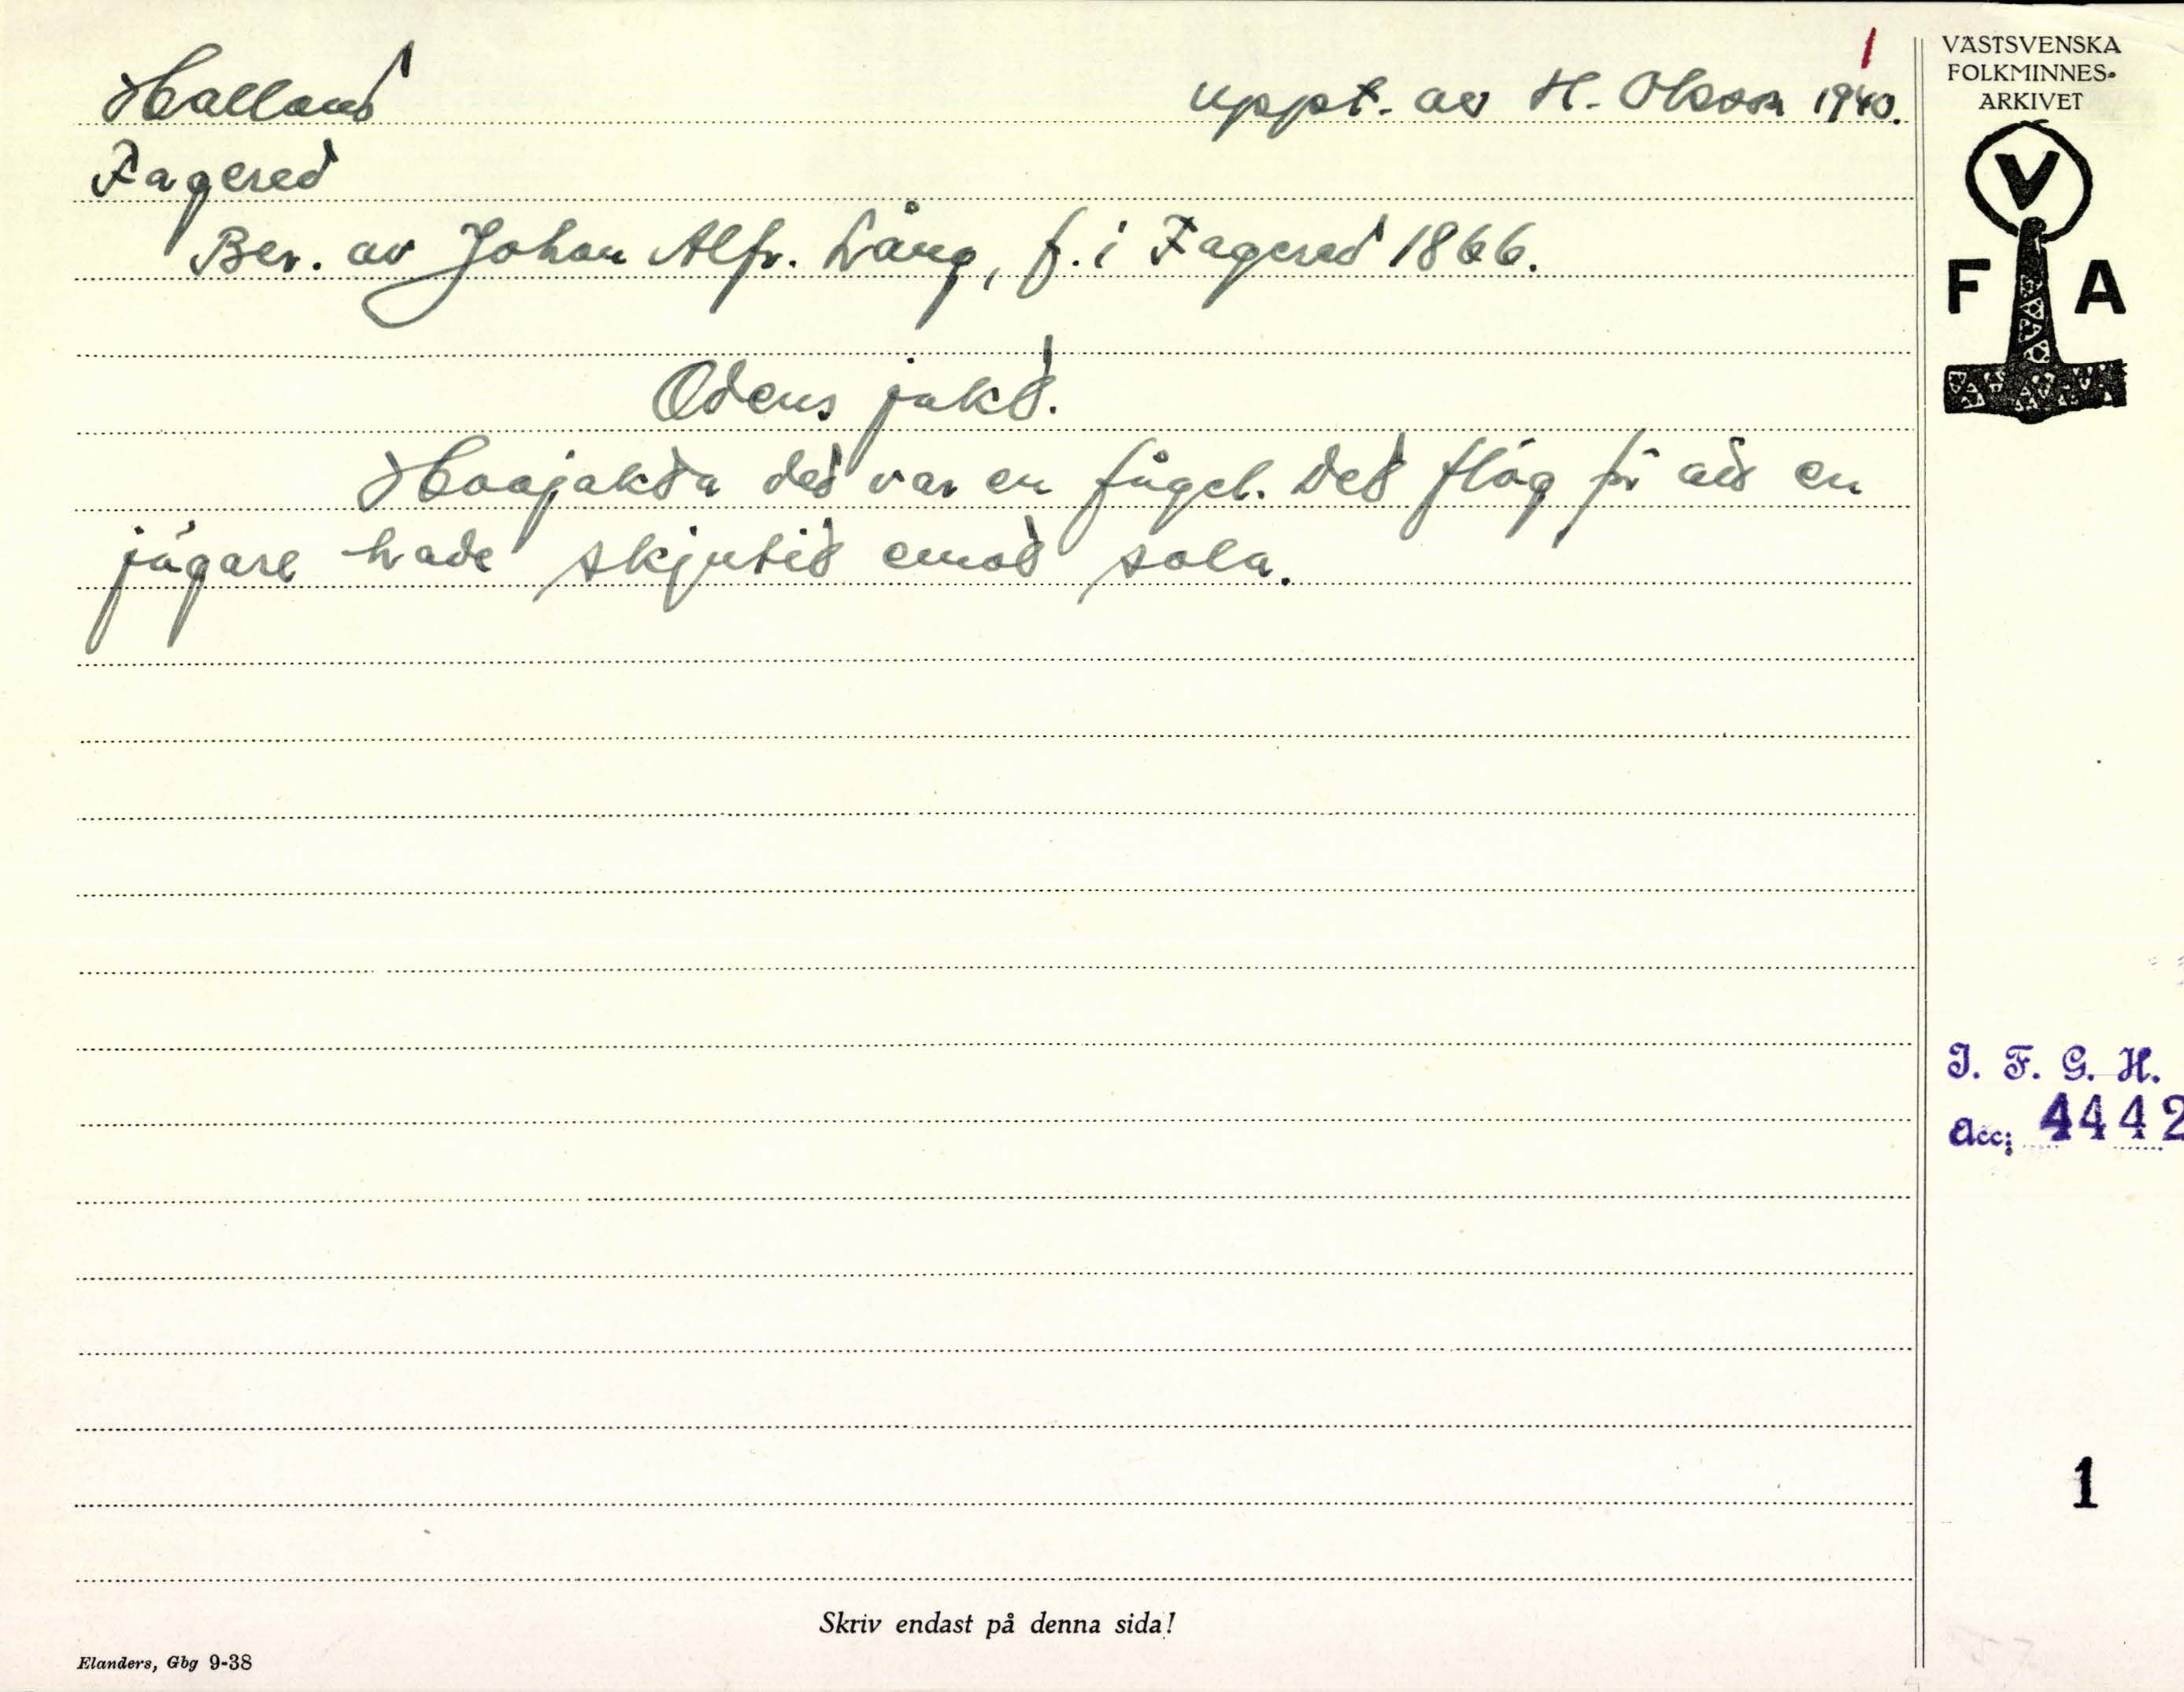 Halland
uppt. av H. Olsson 1940.
1
Fagered
Ber. av Johan Alfr. Lång, f. i Fagered 1866.
Odens jakt.
Hoajakta det var en fågel. Det flög för att en
jägare hade skjutit emot sola.
VÄSTSVENSKA
FOLKMINNES-
ARKIVET
V
F A
I. F. G. H.
Acc; 4442
1
Skriv endast på denna sida!
Elanders, Gbg 9-38